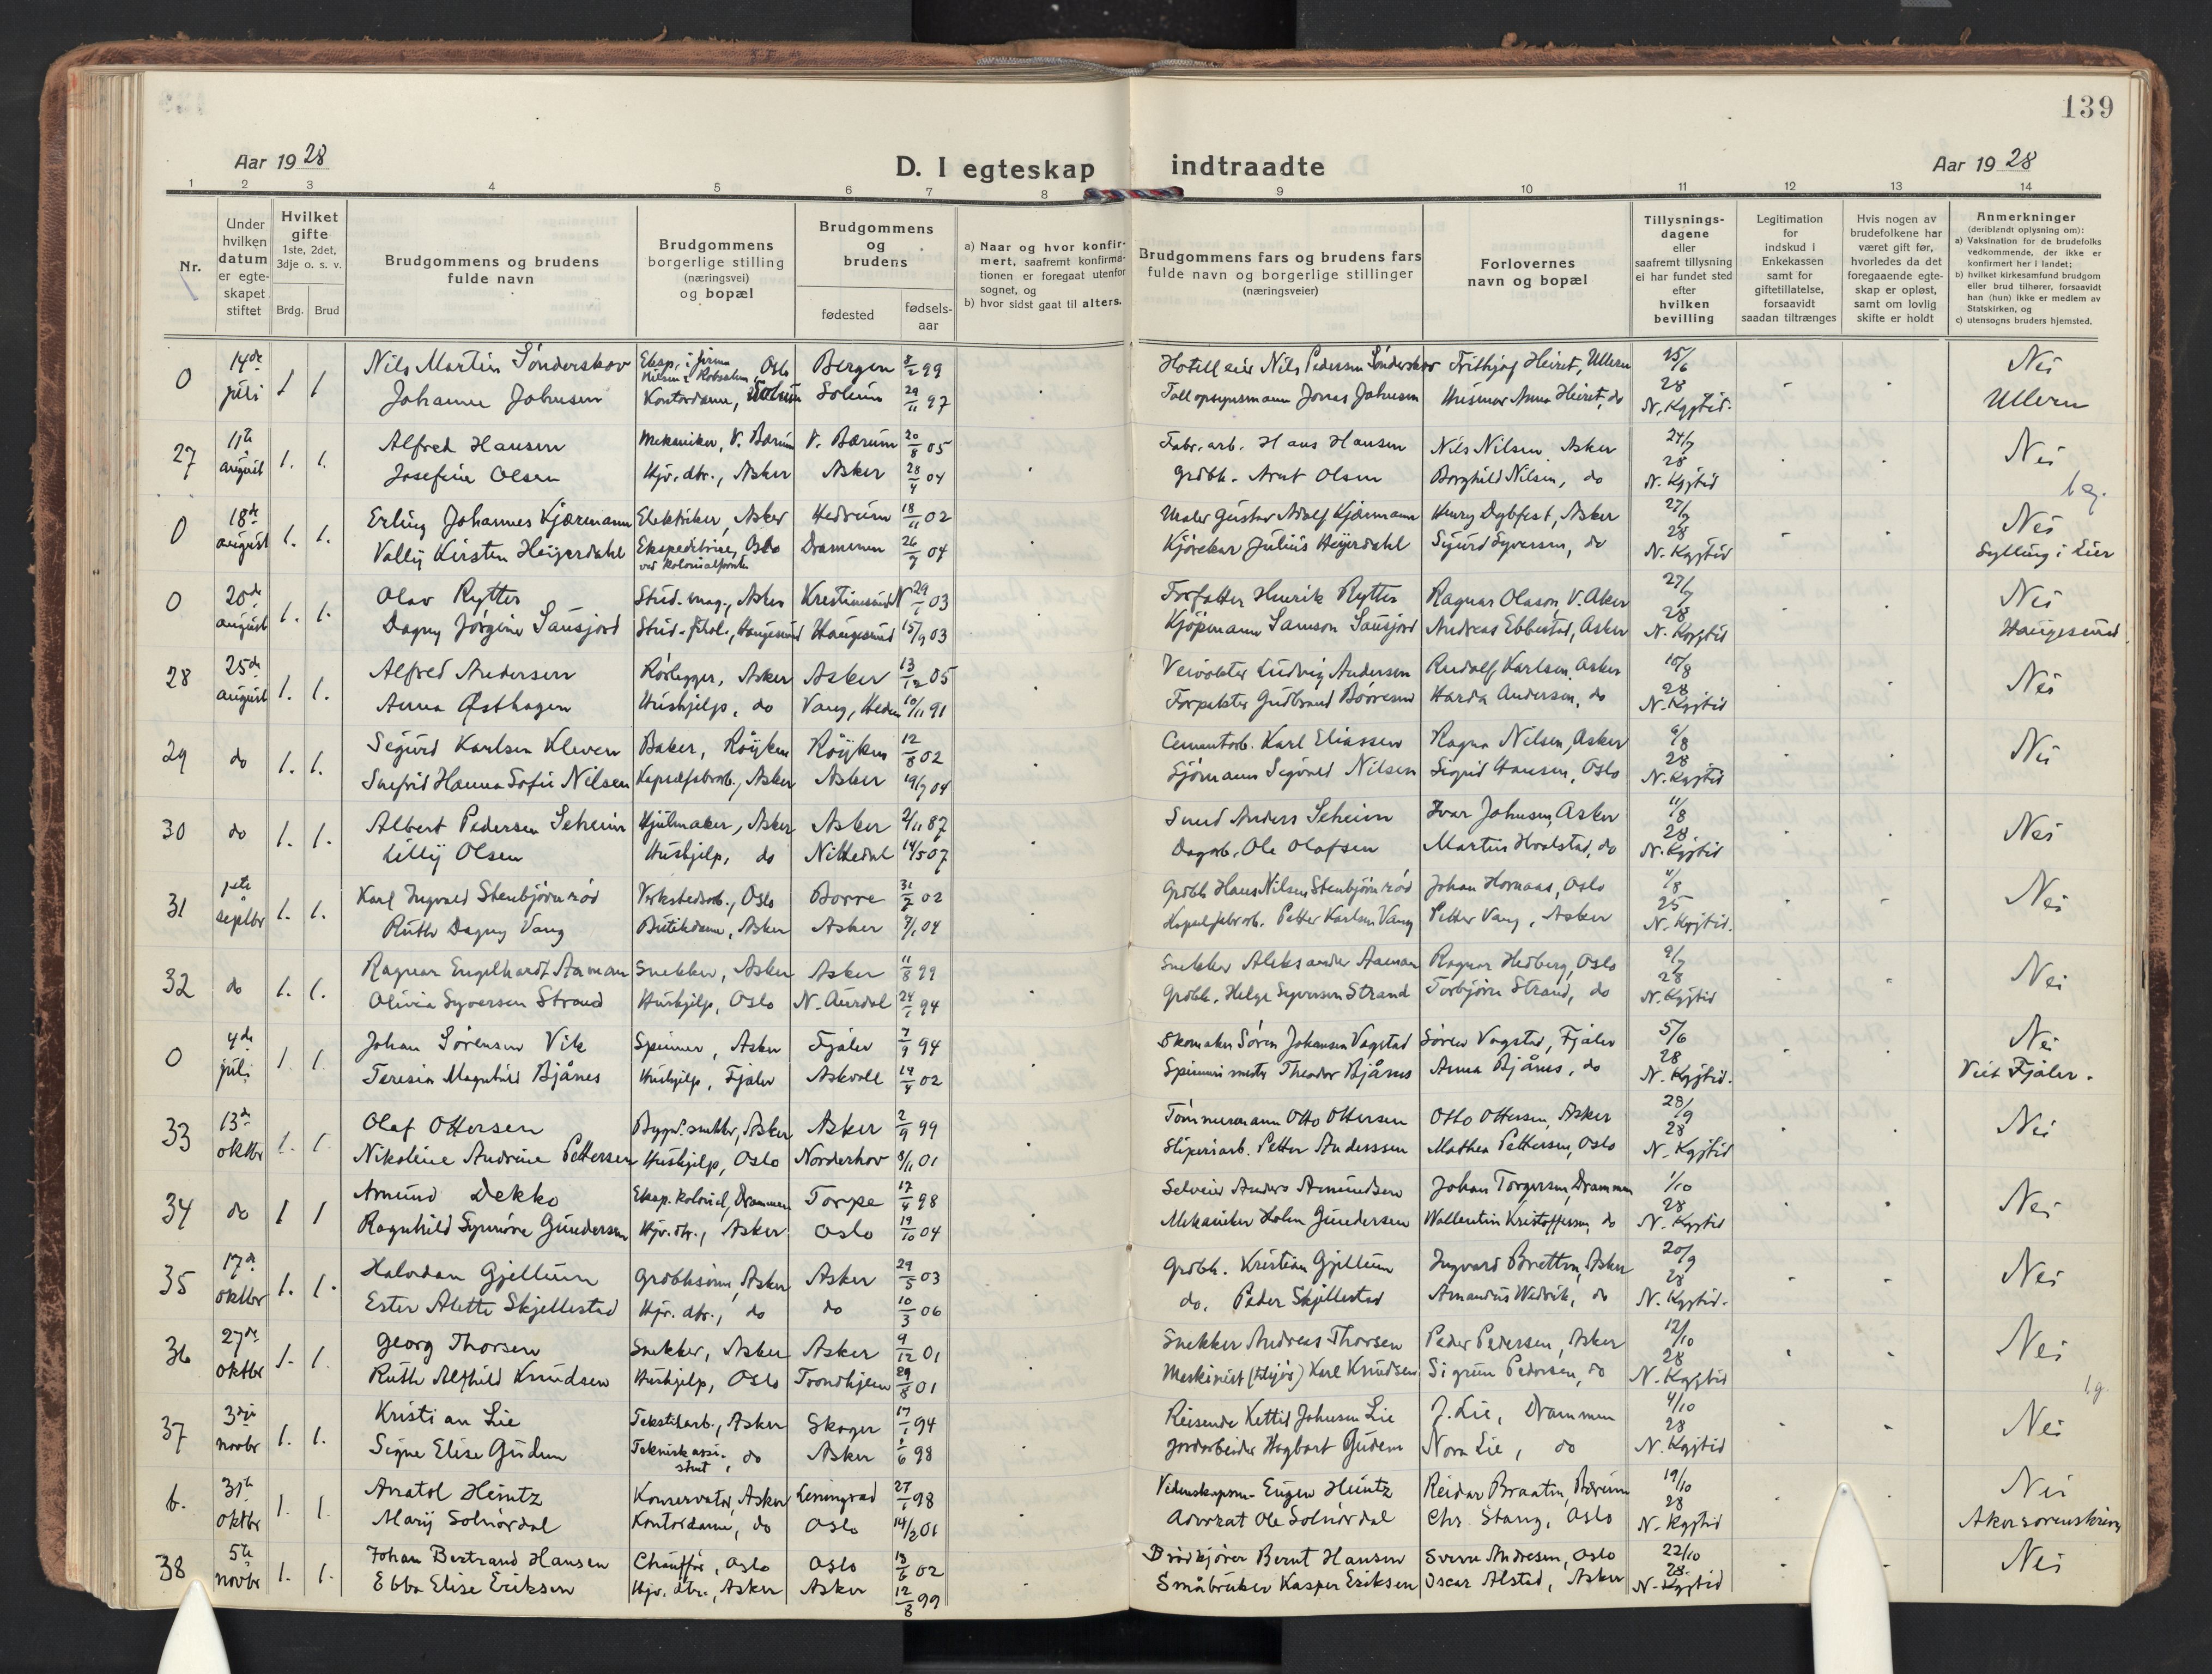 139
Aar 1928
D. I egteskap indtraadte
Aar 1928
1 2 3 4 5 6 7 8 9 10 11 12 13 14
Nr.
Under hvilken datum er egteskapet stiftet
Hvilket gifte 1ste, 2det, 3dje o. s. v.
Brdg. Brud
Brudgommens og brudens fulde navn
Brudgommens borgerlige stilling (næringsvei) og bopæl
Brudgommens og brudens
fødested
fødsels-aar
a) Naar og hvor konfirmert, saafremt konfirmationen er foregaat utenfor sognet, og
b) hvor sidst gaat til alters.
Brudgommens fars og brudens fars fulde navn og borgerlige stillinger (næringsveier)
Forlovernes navn og bopæl
Tillysnings-dagene eller saafremt tillysning ei har fundet sted efter hvilken bevilling
Legitimation for indskud i Enkekassen samt for giftetillatelse, forsaavidt saadan tiltrænges
Hvis nogen av brudefolkene har været gift før, hvorledes da det foregaaende egteskap er opløst, samt om lovlig skifte er holdt
Anmerkninger (deriblandt oplysning om):
a) Vaksination for de brudefolks vedkommende, der ikke er konfirmert her i landet;
b) hvilket kirkesamfund brudgom eller brud tilhører, forsaavidt han (hun) ikke er medlem av Statskirken, og
c) utensogns bruders hjemsted.
0 14de juli 1 1 Nils Martin Sönderskov Eksp. i firma Oslo Bergen 99 Hotelleier Nils Pedersen Sönderskov Frithjof Heiret, Ullern 25/6 28 Nei
Johanne Johnsen Kontordame, Solum 29/11 97 Tollopsynsmann Jonas Johnsen Anna Heiret, do N. Kgjtid. Ullern
27 11te august 1. 1. Alfred Hansen Mekaniker, V. Bærum V. Bærum 20/8 05 Fabr. arb. Hans Hansen Nils Nilsen, Asker 24/7 28 Nei
Josefine Olsen Hjv. dtr., Asker Asker 28/4 04 Grdbk. Arnt Olsen Borghild Nilsen, do N. Kgjtid
0 18de august 1. 1. Erling Johannes Kjærmann Elektriker, Asker Hedrum 18/11 02 Maler Gustav Adolf Kjærmann Henry Dybfest, Asker 27/7 28 Nei
Vally Kirsten Heyerdahl Ekspeditrise, Oslo Drammen 26/9 04 Kjörekar Julius Heyerdahl Sigurd Syversen, do N. Kgjtid Sylling i Lier
0 20de august 1. 1. Olav Rytter Stud. mag., Asker Kristiansund N 29/1 03 Forfatter Henrik Rytter Ragnar Olason, V. Aker 27/7 28 Nei
Dagny Jörgine Sausjord Stud. filol., Haugesund Haugesund 15/9 03 Kjöpmann Samson Sausjord Andreas Ebbestad, Asker N. Kgjtid Haugesund.
28 25de august 1. 1. Alfred Andersen Rörlegger, Asker Asker 13/12 05 Veivokter Ludvig Andersen Rudolf Karlsen, Asker 10/8 28 Nei
Anna Østhagen Hushjelp, do Vang, Hedm 10/11 91 Forpakter Gudbrand Börresen Harda Andersen, do N. Kgjtid
29 do 1. 1. Sigurd Karlsen Kleven Baker, Röyken Röyken 12/8 02 Cementarb. Karl Eliassen Ragna Nilsen, Asker 9/8 28 Nei
Snefrid Hanna Sofie Nilsen Kapselfabrarb., Asker Asker 19/9 04 Sjömann Sigvald Nilsen Sigrid Hansen, Oslo N. Kgjtid
30 do 1. 1. Albert Pedersen Seheim Hjulmaker, Asker Asker 2/11 87 Smed Anders Seheim Ivar Johnsen, Asker 11/8 28 Nei
Lilly Olsen Hushjelp, do Nittedal 14/5 07 Dagarb. Ole Olafsen Martin Hvalstad, do N. Kgjtid
31 1ste septbr 1. 1. Karl Ingvald Stenbjörnröd Verkstedsarb., Oslo Borre 02 Grdbk Hans Nilsen Stenbjörnröd Johan Hornaas, Oslo 11/8 25 Nei
Ruth Dagny Vang Butikdame, Asker Asker 7/1 04 Kapselfabrarb. Petter Karlsen Vang Petter Vang, Asker N. Kgjtid.
32 do 1. 1. Ragnar Engelhardt Aaman Snekker, Asker Asker 11/8 99 Snekker Aleksander Aaman Ragnar Hedberg, Oslo 9/7 28 Nei
Olivia Syversen Strand Hushjelp, Oslo N. Aurdal 24/1 94 Grdbk. Helge Syversen Strand Torbjörn Strand, do N. Kgjtid
0 4de juli 1. 1. Johan Sørensen Vik Spinner, Asker Fjaler 7/9 94 Skomaker Sören Johansen Vagstad Sören Vagstad, Fjaler 5/6 28 Nei
Teresia Magnhild Bjånes Hushjelp, Fjaler Askvoll 14/4 02 Spinnerimester Theodor Bjånes Anna Bjånes, do N. Kgjtid. Viet Fjaler.
33 13de oktbr 1. 1. Olaf Ottersen Bygn. snekker, Asker Asker 2/9 99 Tömmermann Otto Ottersen Otto Ottersen, Asker 28/9 28 Nei
Nikoline Andrine Pettersen Hushjelp, Oslo Norderhov 8/11 01 Sliperiarb. Petter Anderssen Mathea Pettersen, Oslo N. Kgjtid
34 do 1 1 Amund Dekko Eksp. kolonial, Drammen Torpe 17/4 98 Selveier Anders Amundsen Johan Torgersen, Drammen 1/10 28 Nei
Ragnhild Synnöve Gundersen Hjv. dtr., Asker Oslo 19/10 04 Mekaniker Holm Gundersen Wallentin Kristoffersen, do N. Kgjtid
35 17de oktbr 1. 1. Halvdan Gjellum Grdbksönn, Asker Asker 29/5 03 Grdbk. Kristian Gjellum Ingvard Bretten, Asker 20/9 28 Nei
Ester Alette Skjellestad Hjv. dtr., do do 10/3 06 do. Peder Skjellestad Amandus Wedvik, do N. Kgjtid.
36 27de oktbr 1. 1. Georg Thorsen Snekker, Asker Asker 9/12 01 Snekker Andreas Thorsen Peder Pedersen, Asker 12/10 28 Nei
Ruth Alfhild Knudsen Hushjelp, Oslo Trondhjem 29/8 01 Maskinist (tilsjös) Karl Knudsen Sigrun Pedersen, do N. Kgjtid
37 3dje novbr 1. 1. Kristian Lie Tekstilarb., Asker Skoger 17/1 94 Reisende Kettil Johnsen Lie J. Lie, Drammen 4/10 28 Nei
Signe Elise Gudem Teknisk assistent, do Asker 1/6 98 Jordarbeider Hagbart Gudem Nora Lie, do N. Kgjtid
b. 31te oktbr 1. 1. Anatol Heintz Konservator, Asker Leningrad 98 Videnskapsm. Eugen Heintz Reidar Braaten, Bærum 19/10 28 Nei
Mary Solnördal Kontordame, do Oslo 14/2 01 Advokat Ole Solnördal Chr. Stang, Oslo N. Kgjtid Aker sorenskriv
38 5te novbr 1. 1. Johan Bertrand Hansen Chaufför, Oslo Oslo 13/6 02 Brödkjörer Bernt Hansen Sverre Andresen, Oslo 22/10 28. Nei
Ebba Elise Eriksen Hjv. dtr., Asker Asker 12/8 99 Småbruker Kasper Eriksen Oscar Alstad, Asker N. Kgjtid